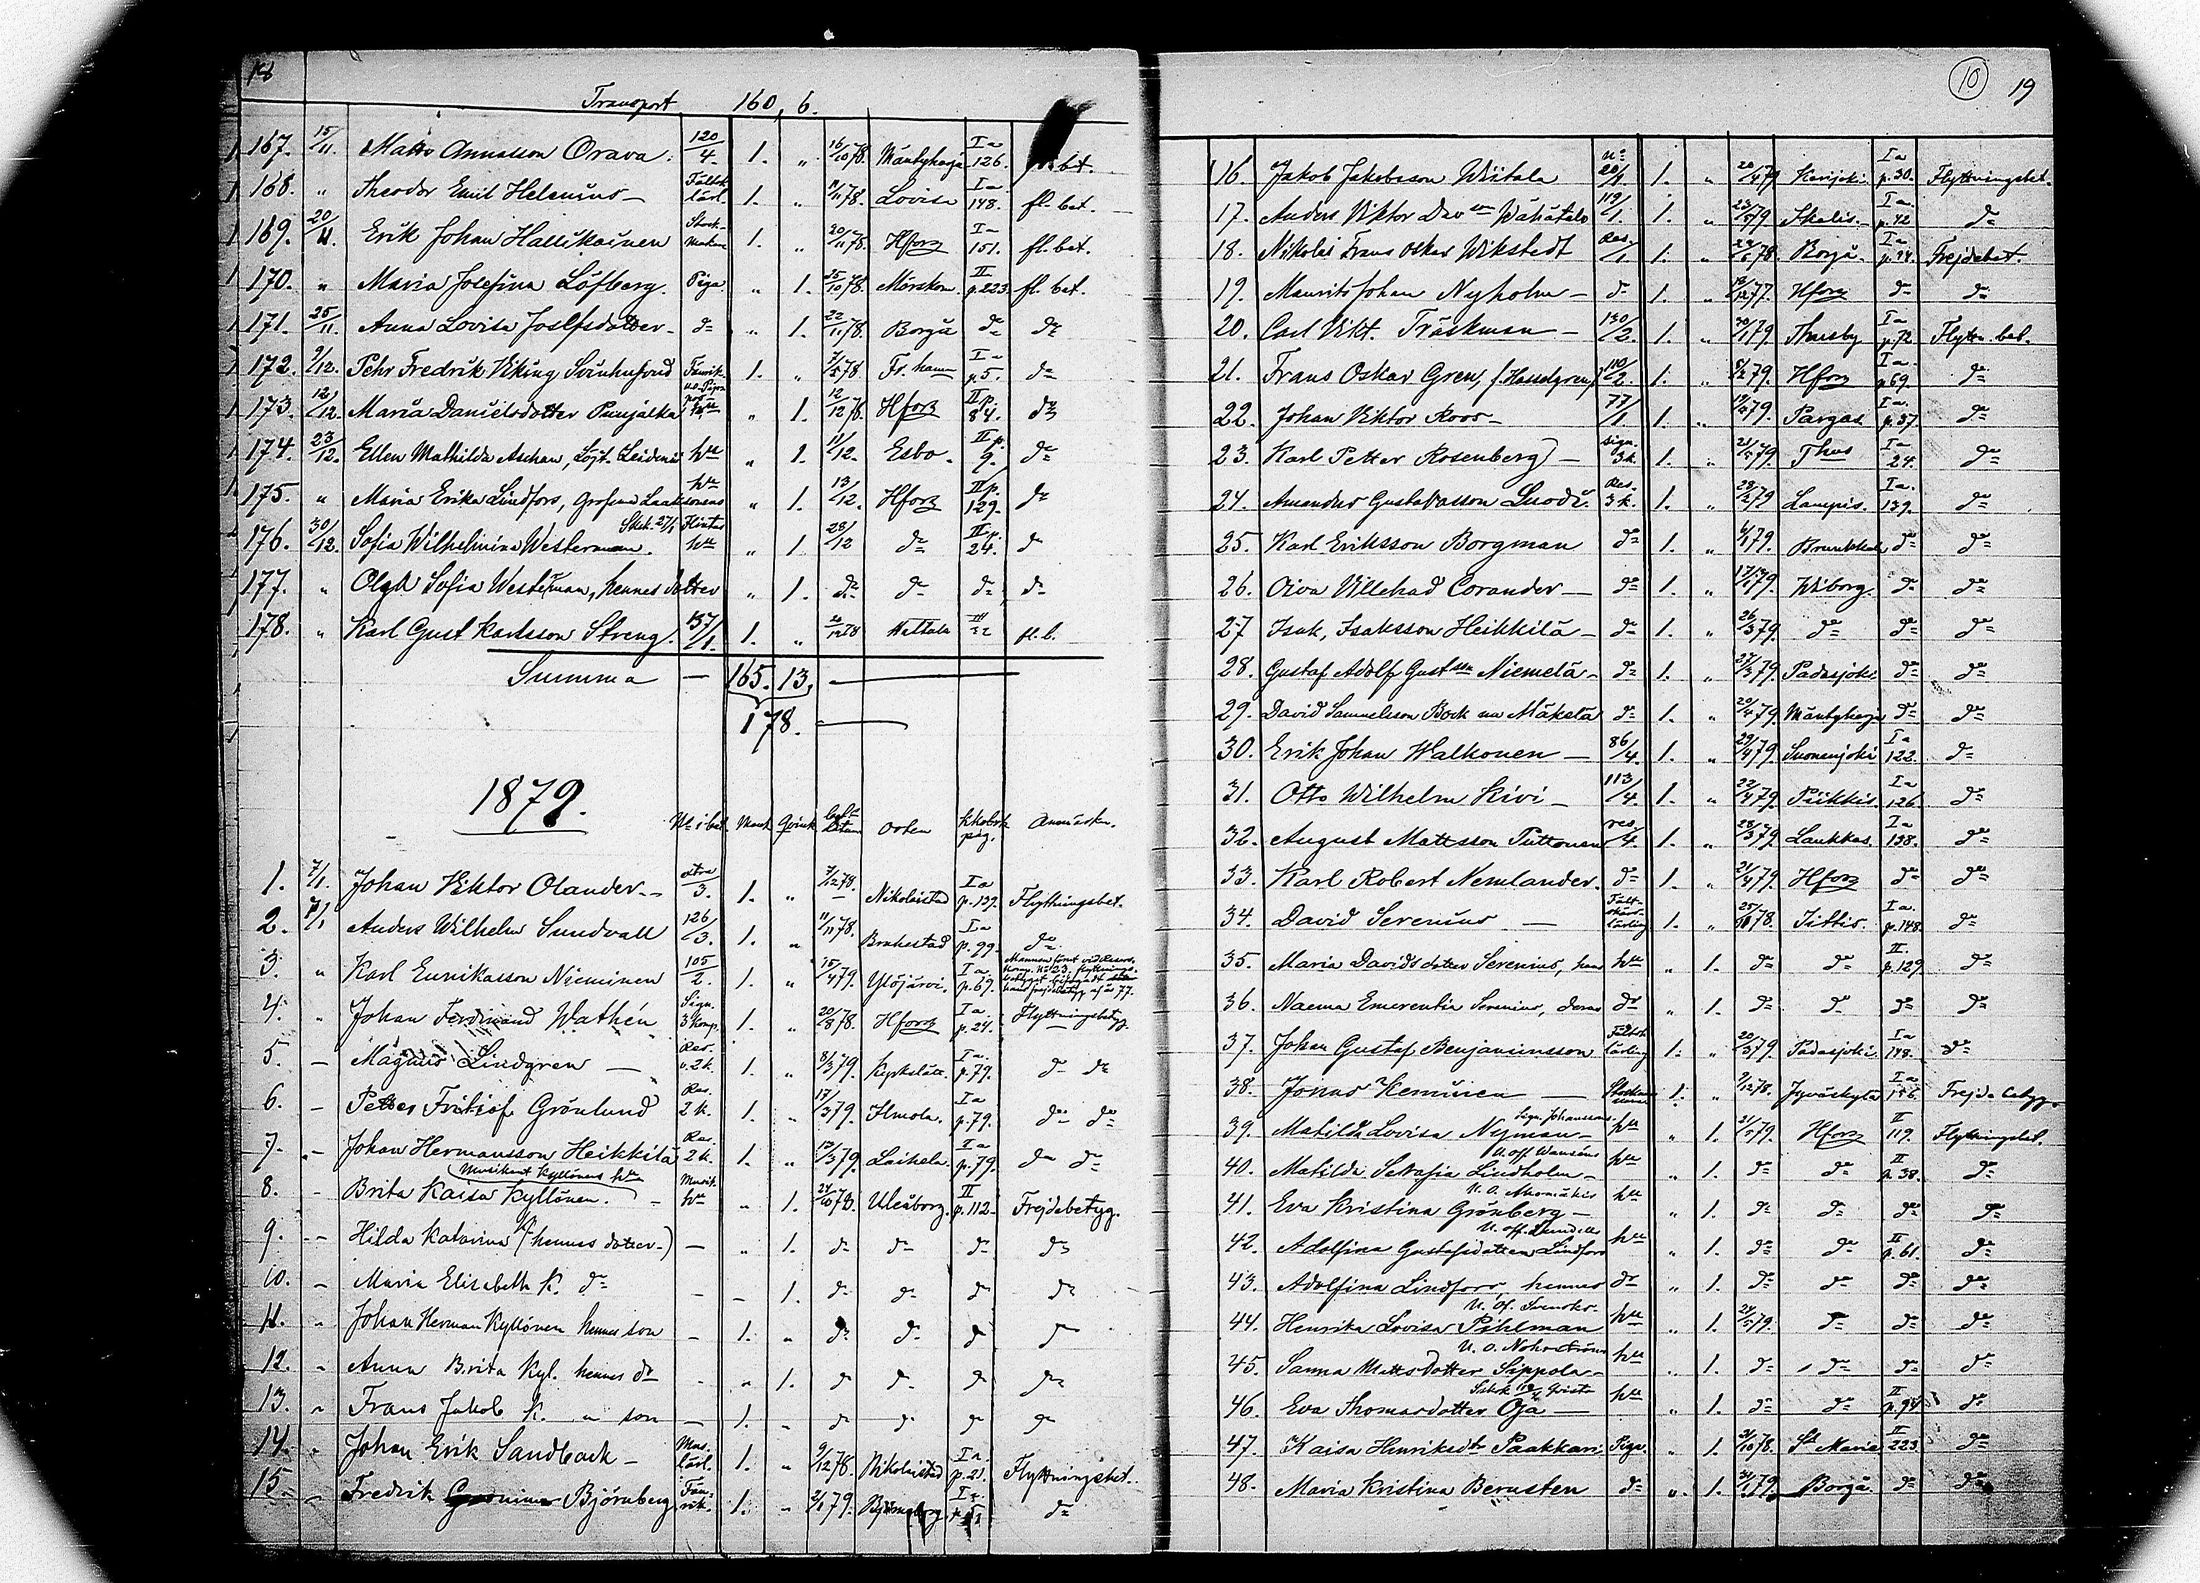 18
Transport 160, 6.
167. 15/11. Matts Annasson Orava. 120/4. 1. „ 16/10 78. Mäntyharju Ia 126. bet.
168. „ Theodor Emil Helenius — Fältsk. lärl. 1. „ 11/11 78. Lovisa Ia 148. fl. bet.
169. 20/11. Erik Johan Hallikainen 1. „ 20/11 78. Hfors Ia 151. fl. bet.
170. „ Maria Josefina Löfberg. Piga. „ 1. 25/10 78. Mörskom. II p.223. fl. bet.
171. 25/11. Anna Lovisa Joslfsdotter — d:o „ 1. 22/11 78. Borgå d:o d:o
172. 9/12. Pehr Fredrik Viking Svinhufvud Fänrik 1. „ 78 Fr.hamn Ia p.5. d:o
173. 12/12. Maria Danielsdotter Punjalka „ 1. 12/12 78. Hfors II p. 84. d:o
174. 23/12. Ellen Mathilda Aschan, Löjt. hu „ 1. 11/12. Esbo. II p. 9. d:o
175. „ Maria Erika Lindfors, hu „ 1. 13/12. Hfors II p. 129. d:o
176. 30/12. Sofia Wilhelmina Westerman. hu „ 1 28/12 d:o II p. 24. d:o
177. „ Olga Sofia Westerman, hennes dotter „ 1. d:o d:o d:o d:o
178. „ Karl Gust Karlsson Streng. 137/1. 1. „ 78 III 32 fl. b.
Summa — 165. 13.
178.
1879.
N:o i bat. Mank. Qvink. Datum Orten Kkobok pag. Anmärkn.
1. 7/1. Johan Viktor Olander — 3. 1. „ 7/12 78. Nikolaistad Ia p. 139. Flyttningsbet.
2. 7/1 Anders Wilhelm Sundvall 126/3. 1. „ 11/11 78. Brahestad Ia p. 99. d:o
3. „ Karl Enrikasson Nieminen 105/2. 1. „ 15/4 79. Ylöjärvi. Ia p. 69.
4. „ Johan Ferdinand Wathén Sign. 3 komp. 1. „ 20/8 78. Hfors Ia p. 24. Flyttningsbetyg.
5. — Magnus Lindgren — Res. 2 k. 1. „ 8/3 79. Kyrkslätt. Ia p. 79. d:o d:o
6. — Petter Fritiof Grönlund Res. 2 k. 1. „ 17/3 79. Ilmola. Ia p. 79. d:o d:o
7. — Johan Hermansson Heikkilä Res. 2 k. 1. „ 17/3 79. Laihela. Ia p. 79. d:o d:o
Musikant Kyllönens hu
8. — Brita Kaisa Kyllönen. — Musik. hu „ 1. 24/10 78. Uleåborg. II p. 112. Frejdebetyg.
9. — Hilda Katarina K. (hennes dotter) — „ 1. d:o d:o d:o d:o
10. — Maria Elisabeth K. d:o — — 1. d:o d:o d:o d:o
11. „ Johan Herman Kyllönen hennes son — 1. „ d:o d:o d:o d:o
12. „ Anna Brita Kyl. hennes d:o „ 1. d:o d:o d:o d:o
13. „ Frans Jakob K. „ son — 1. — d:o d:o d:o d:o
14. „ Johan Erik Sandback — Mus. lärl. 1. „ 9/12 78. Nikolaistad Ia p. 21. Flyttningsbet.
15. — Fredrik Björnberg Fänrik. 1. „ 2/1 79. Björneborg Ia d:o
10
19
16. Jakob Jakobsson Wiitala 1. „ 20/4 79 Karijoki Ia p. 30. Flyttningsbet.
17. Anders Viktor Dav:son 119/1. 1. „ 79 Ia p. 42 d:o
18. Nikolai Frans Oskar Wikstedt Res./1. 1. „ 78. Borgå. Ia p. 44. Frejdebet.
19. Maurits Johan Nyholm — d:o 1. „ 77. Hfors d:o d:o
20. Carl Vikt. Träskman — 130/2. 1. „ 79 Thusby Ia p. 72 Flyttn. bet.
21. Frans Oskar Gren, 110/2. 1. „ 79. Hfors Ia p. 69. d:o
22. Johan Viktor Roos — 77/1. 1. „ 79. Pargas Ia p. 37 d:o
23. Karl Petter Rosenberg — Sign. 3k. 1. „ 79. Ia 24. d:o
24. Amandus Gustafsson Res. 3 k. 1. „ 79 Lampis. Ia 139. d:o
25. Karl Eriksson Borgman d:o 1. „ 79. d:o d:o
26. Oiva Villehad Corander — d:o 1. „ 79 Wiborg. d:o d:o
27 Isak, Isaksson Heikkilä — d:o 1. „ 26/3 79. d:o d:o d:o
28. Gustaf Adolf Gust:son Niemelä — d:o 1. „ 79. Padasjoki d:o d:o
29. David Samuelsson Bock d:o 1. „ 20/4 79. Mäntyharju d:o d:o
30. Erik Johan Walkonen — 86/4. 1. „ 29/4 79. Suonenjoki Ia 122. d:o
31. Otto Wilhelm Kivi — 113/4. 1. „ 22/4 79. Piikkis. Ia 126. d:o
32. August Mattsson Puttonen res./4. 1. „ 28/3 79. Laukkas. Ia 138. d:o
33. Karl Robert Nemlander. d:o 1. „ 21/4 79. Hfors d:o d:o
34. David Serenius — Fältskärs lärling 1. „ 78. Iittis. Ia p. 148. d:o
35. Maria Davidsdotter Serenius, hans hu „ 1. d:o d:o II p. 129 d:o
36. Naema Emerentia Serenius, deras d:o „ 1. d:o d:o d:o d:o
37. Johan Gustaf Benjaminsson Fältsk. lärling 1. „ 20/3 79. Padasjoki Ia 148. d:o
38. Jonas Keminen — 1. „ 78. Jyväskylä Ia 156. Frejdebetyg.
Sign. Johanssons
39. Matilda Lovisa Nyman — hu „ 1. 79. Hfors II 119. Flyttningsbet.
40. Matilda Serafia Lindholm — hu „ 1. d:o d:o II p. 38. d:o
41. Eva Kristina Grönberg — hu „ 1. d:o d:o d:o d:o
42. Adolfina Gustafsdotter Lindfors hu „ 1. d:o d:o II p. 61. d:o
43. Adolfina Lindfors, hennes d:r „ 1. d:o d:o d:o d:o
44. Henrika Lovisa Pihlman hu „ 1. 79. d:o d:o d:o
45. Sanna Mattsdotter Sippola — hu „ 1. d:o d:o d:o d:o
46. Eva Thomasdotter Oja — hu „ 1. d:o d:o II p. 94 d:o
47. Kaisa Henriksdtr Paakkari Piga. „ 1. 78. S:t Marie II 223. d:o
48. Maria Kristina Bernsten d:o „ 1. 79. Borgå d:o d:o